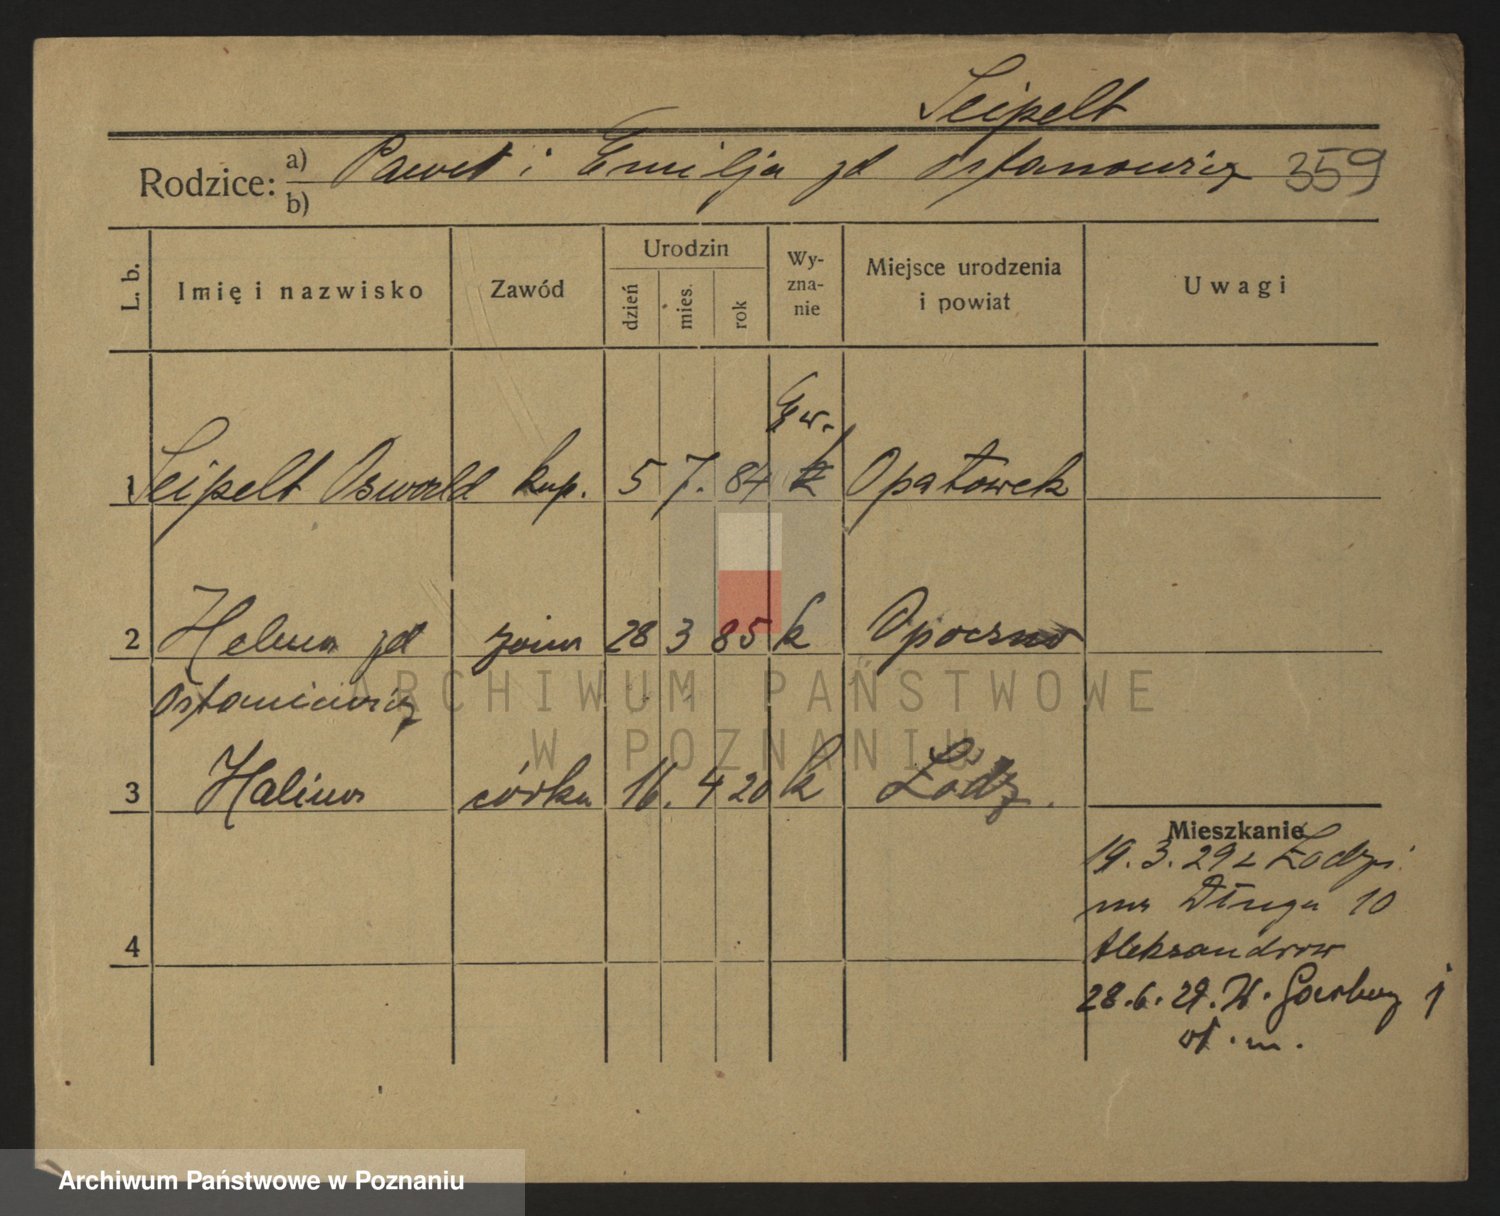 Seipelt
Rodzice: a) Paweł i Emilja zd Ostanowicz 359
b)
L. b. Imię i nazwisko Zawód Urodzin dzień mies. rok Wy-zna-nie Miejsce urodzenia i powiat Uwagi
Ew.
1 Seipelt Oswald kup. 5 7. 84 k Opatówek
2 Helena zd żona 28 3 85 k Opoczno
Ostaniewicz
3 Halina córka 16. 4 20 k Łódź.
Mieszkanie
19. 3. 29 z Łodzi
na Długa 10
4
Aleksandrow
28. 6. 29. W. Garbary 1
wł. m.
ARCHIWUM PAŃSTWOWE
W POZNANIU
Archiwum Państwowe w Poznaniu